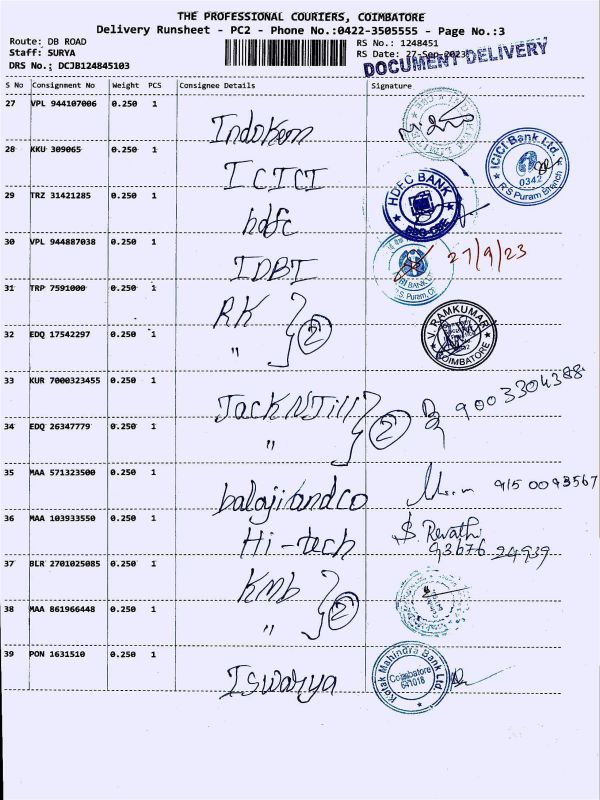 THE PROFESSIONAL COURIERS, COIMBATORE
Delivery Runsheet - PC2 - Phone No.:0422-3505555 - Page No.:3
Route: DB ROAD
Staff: SURYA
DRS No.; DCJB124845103
RS No.: 1248451
RS Date: 27-Sep-2023
DOCUMENT DELIVERY
S No Consignment No Weight PCS Consignee Details Signature
27 VPL 944107006 0.250 1
Indokem
28 KKU 309065 0.250 1
ICICI
ICICI Bank Ltd.
0342
R S Puram Branch
29 TRZ 31421285 0.250 1
hdfc
HDFC BANK
30 VPL 944887038 0.250 1
IDBI
27/9/23
31 TRP 7591000 0.250 1
RK
2
V. RAMKUMAR
COIMBATORE
32 EDQ 17542297 0.250 1
"
33 KUR 7000323455 0.250 1
Jack N Jill
2
9003304388
34 EDQ 26347779 0.250 1
"
35 MAA 571323500 0.250 1
balaji and co
915 0093567
36 MAA 103933550 0.250 1
Hi-tech
S. Revathi
93676 24939
37 BLR 2701025085 0.250 1
KMb
2
38 MAA 861966448 0.250 1
"
39 PON 1631510 0.250 1
Iswarya
Kotak Mahindra Bank Ltd.
Coimbatore
641018